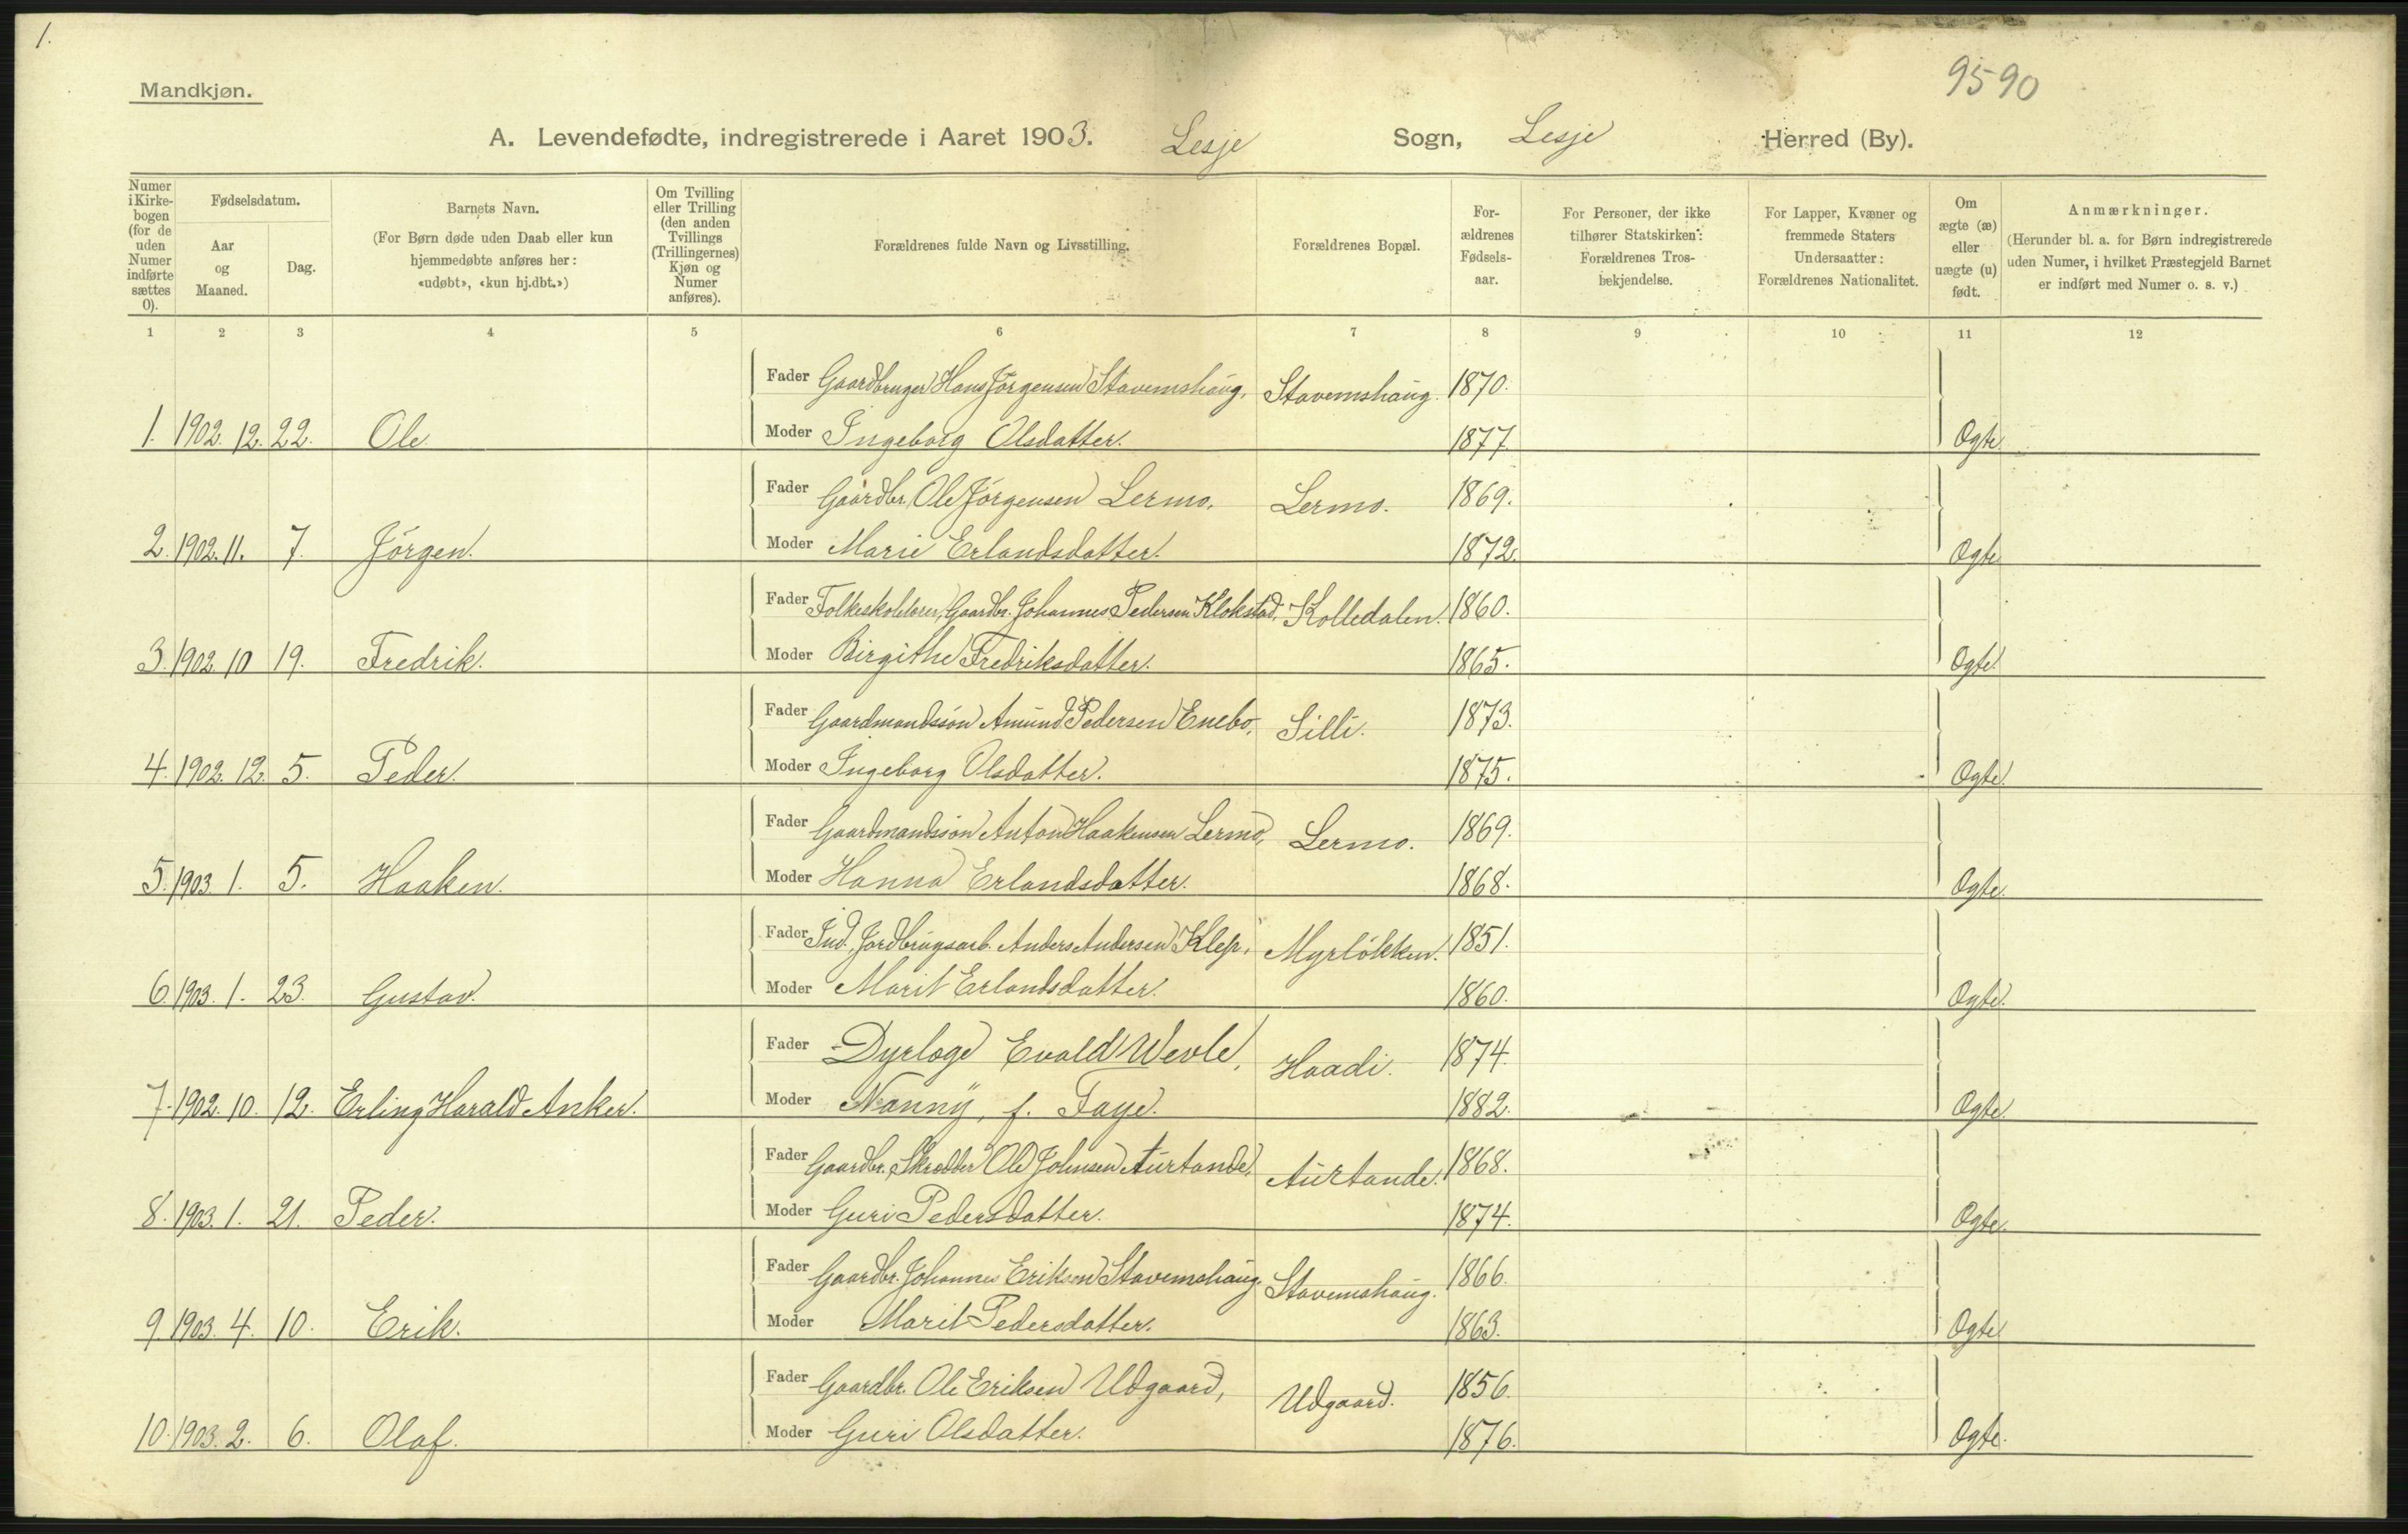 1.
9590
Mandkjøn.
A. Levendefødte, indregistrerede i Aaret 1903. Lesje Sogn, Lesje Herred (By).
Numer i Kirkebogen (for de uden Numer indførte sættes 0).
Fødselsdatum.
Aar og Maaned.
Dag.
Barnets Navn.
(For Børn døde uden Daab eller kun hjemmedøbte anføres her: «udøbt», «kun hj.dbt.»)
Om Tvilling eller Trilling (den anden Tvillings (Trillingernes) Kjøn og Numer anføres).
Forældrenes fulde Navn og Livsstilling.
Forældrenes Bopæl.
For-ældrenes Fødsels-aar.
For Personer, der ikke tilhører Statskirken: Forældrenes Tros-bekjendelse.
For Lapper, Kvæner og fremmede Staters Undersaatter: Forældrenes Nationalitet.
Om ægte (æ) eller uægte (u) født.
Anmærkninger.
(Herunder bl. a. for Børn indregistrerede uden Numer, i hvilket Præstegjeld Barnet er indført med Numer o. s. v.)
1 2 3 4 5 6 7 8 9 10 11 12
Fader Gaardbruger Hans Jörgensen Stavemshaug, Stavemshaug. 1870.
1. 1902. 12. 22. Ole Moder Ingeborg Olsdatter. 1877. Ægte
Fader Gaardbr. Ole Jörgensen Lermo, Lermo. 1869.
2. 1902. 11. 7. Jörgen. Moder Marie Erlandsdatter. 1872. Ægte
Fader Folkeskolelærer, Gaardbr. Johannes Pedersen Klokstad, Kolledalen. 1860.
3. 1902. 10 19. Fredrik. Moder Birgithe Fredriksdatter. 1865. Ægte
Fader Gaardmandssön Amund Pedersen Enebo, Silli. 1873.
4. 1902. 12. 5. Peder. Moder Ingeborg Olsdatter. 1875. Ægte
Fader Gaardmandssön Anton Haakensen Lermo, Lermo. 1869.
5. 1903. 1. 5. Haaken. Moder Hanna Erlandsdatter. 1868. Ægte
Fader Ind. Jordbrugsarb. Anders Andersen Klep, Myrlökken. 1851.
6. 1903. 1. 23. Gustav. Moder Marit Erlandsdatter. 1860. Ægte.
Fader Dyrlæge Evald Wevle, Haadi. 1874.
7. 1902. 10. 12. Erling Harald Anker. Moder Nanny, f. Faye. 1882. Ægte.
Fader Gaardbr., Skrædder Ole Johnsen Aurtande, Aurtande. 1868.
8. 1903. 1. 21. Peder. Moder Guri Pedersdatter. 1874. Ægte.
Fader Gaardbr. Johannes Eriksen Stavemshaug. Stavemshaug. 1866.
9. 1903. 4. 10. Erik. Moder Marit Pedersdatter. 1863. Ægte
Fader Gaardbr. Ole Eriksen Udgaard, Udgaard. 1856.
10. 1903. 2. 6. Olaf. Moder Guri Olsdatter. 1876. Ægte.